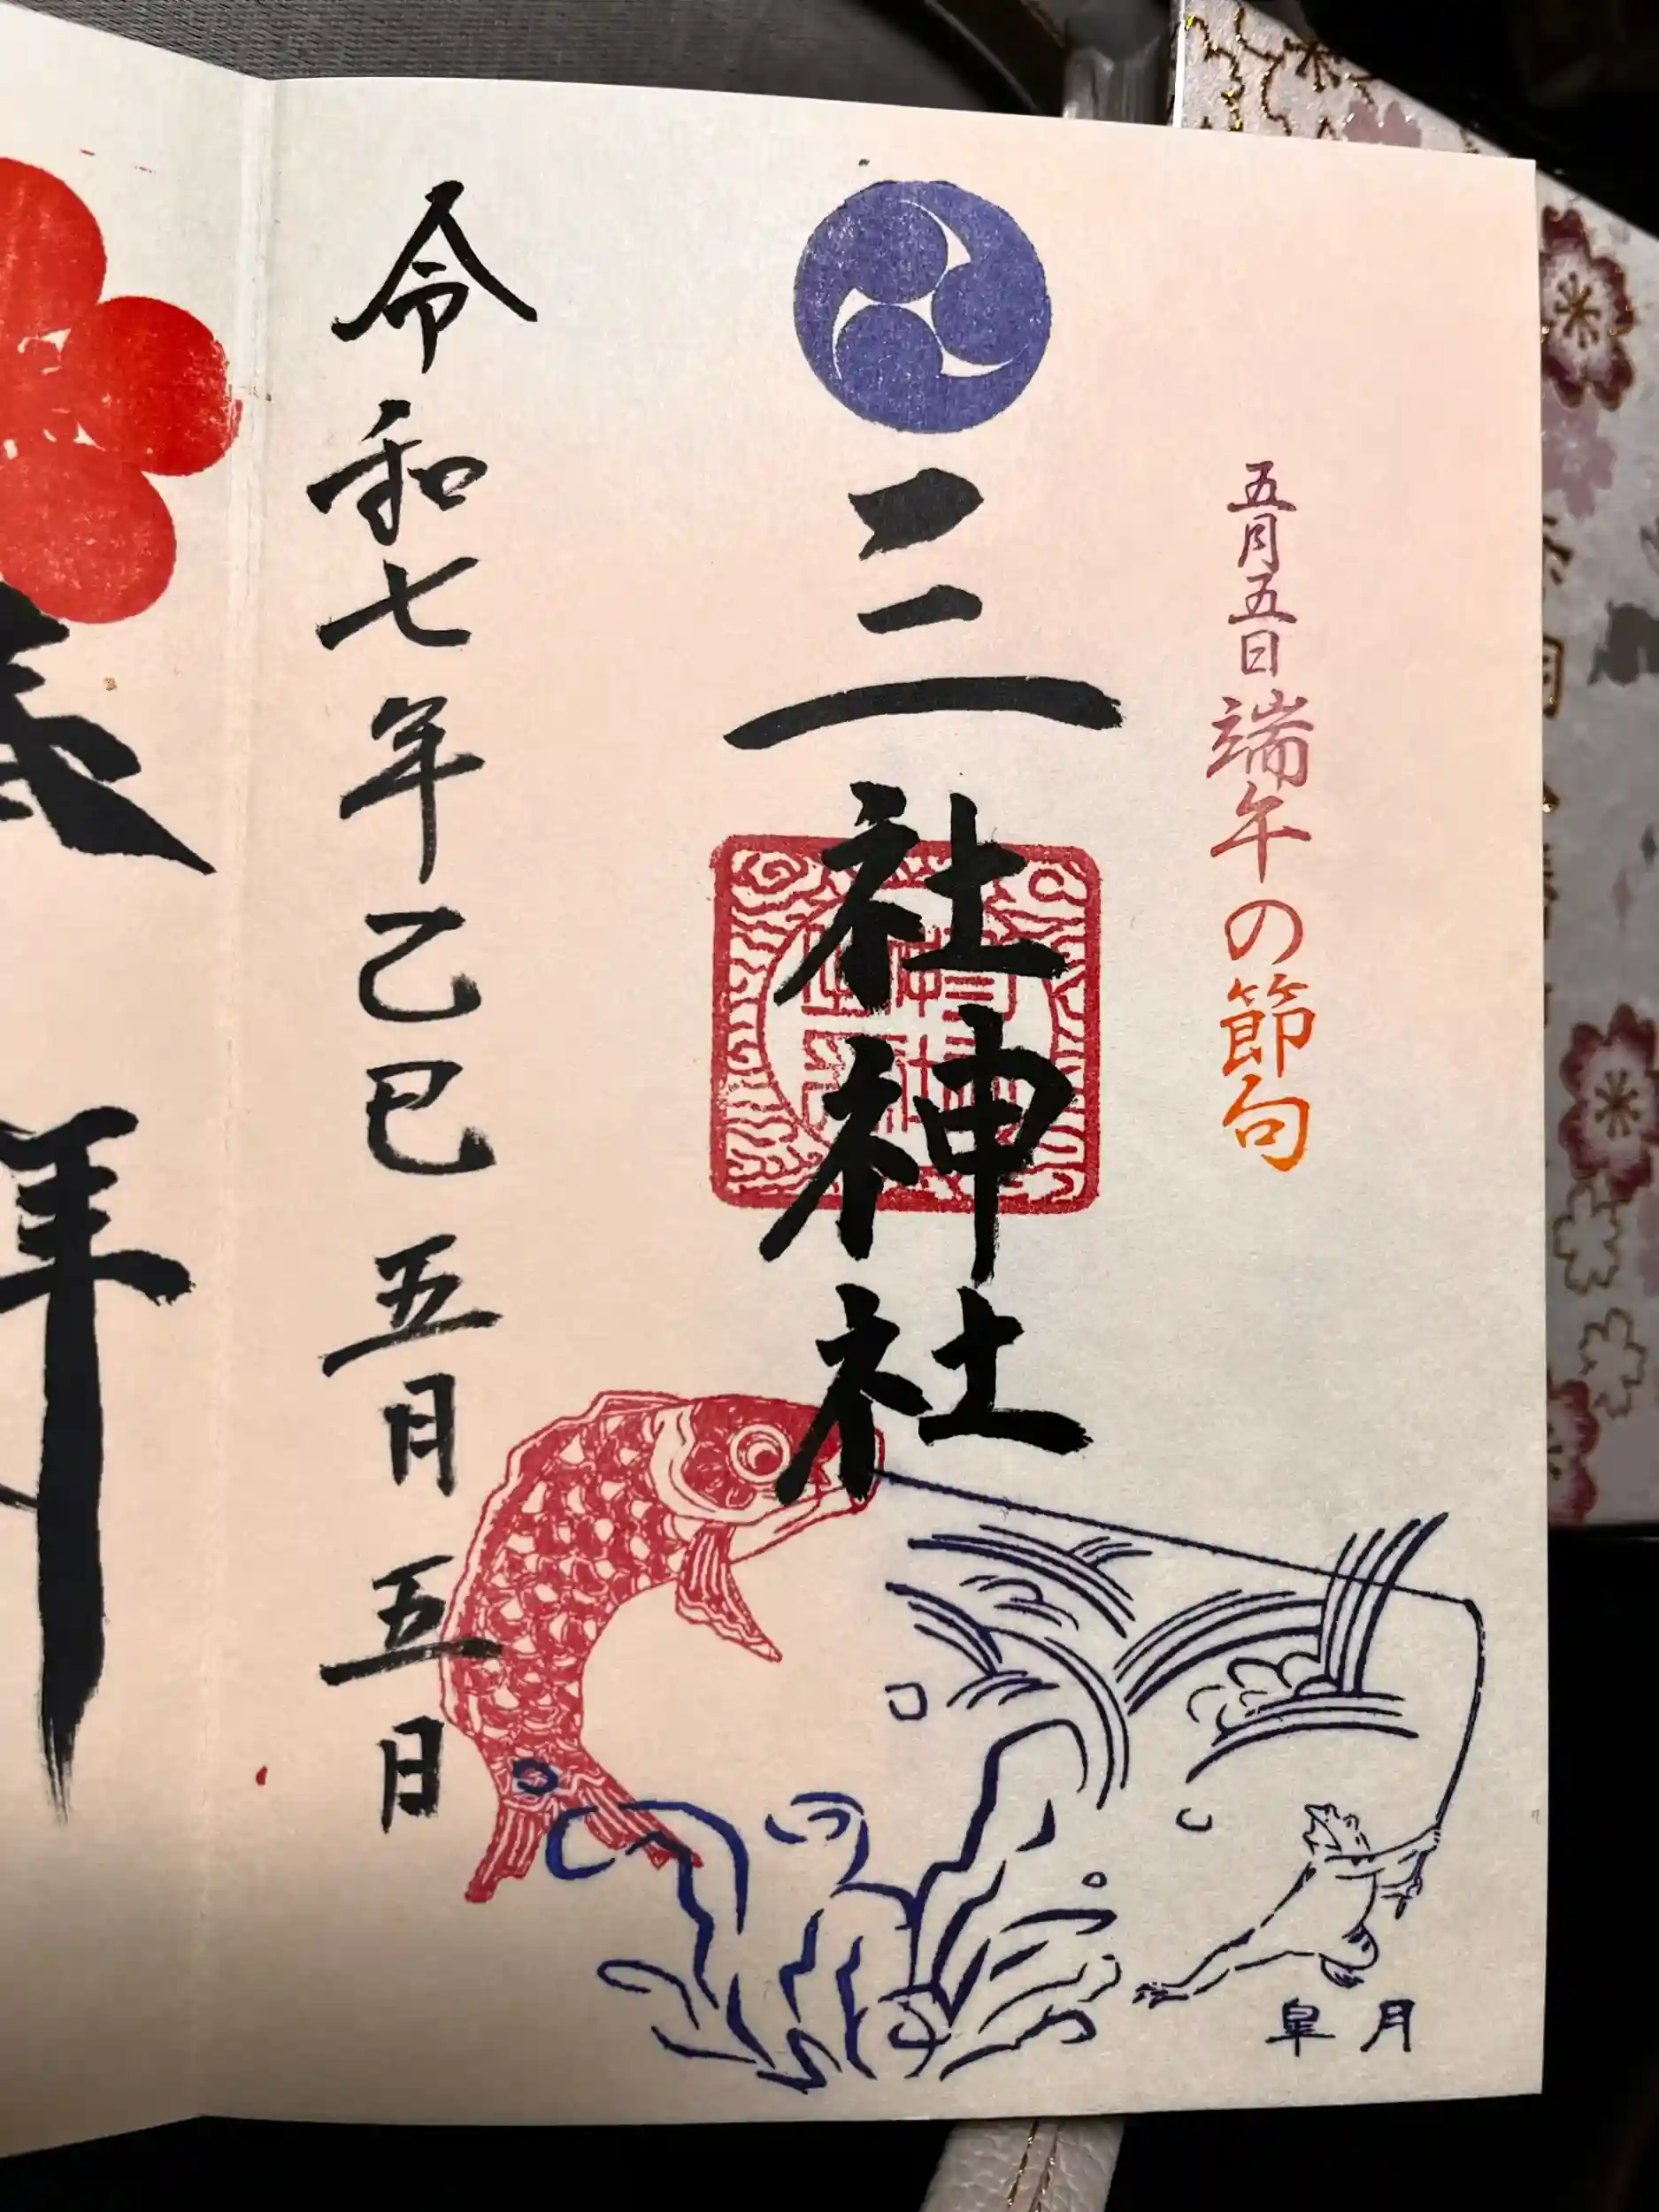 五月五日端午の節句
三社神社
令和七年乙巳五月五日
皐月